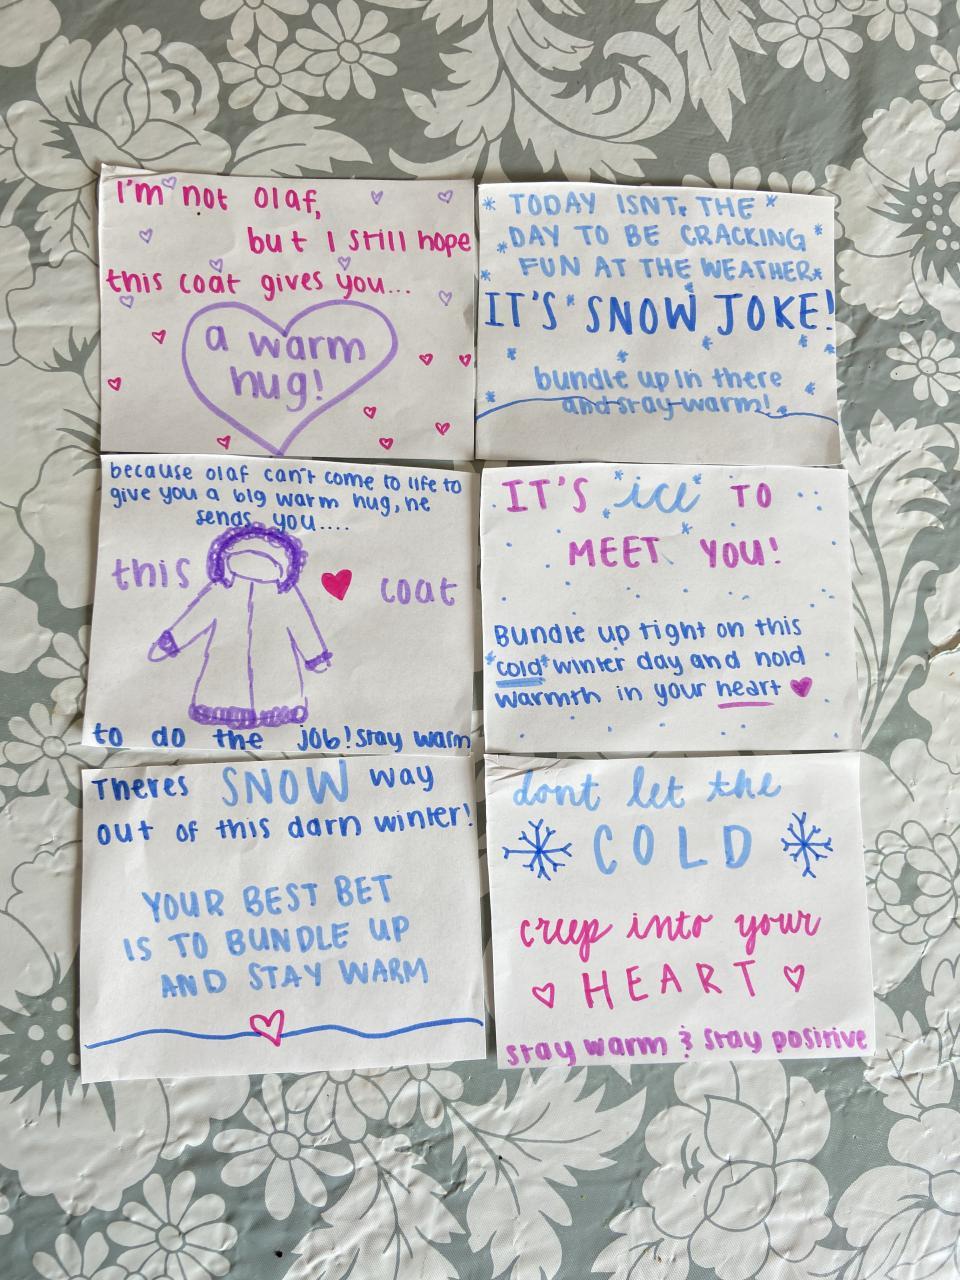 I'm not Olaf,
but I still hope
this coat gives you...
a warm
hug!
TODAY ISNT THE
DAY TO BE CRACKING
FUN AT THE WEATHER
IT'S SNOW JOKE!
bundle up in there
and stay warm!
because olaf can't come to life to
give you a big warm hug, he
sends you....
this coat
to do the job! stay warm
IT'S ice TO
MEET YOU!
Bundle up tight on this
cold winter day and hold
warmth in your heart
Theres SNOW way
out of this darn winter!
YOUR BEST BET
IS TO BUNDLE UP
AND STAY WARM
dont let the
COLD
creep into your
HEART
stay warm & stay positive